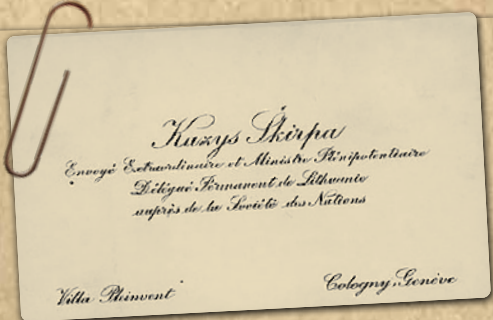 Kazys Škirpa
Envoyé Extraordinaire et Ministre Plénipotentiaire
Délégué Permanent de Lithuanie
auprès de la Société des Nations
Villa Pleinvent
Cologny, Genève